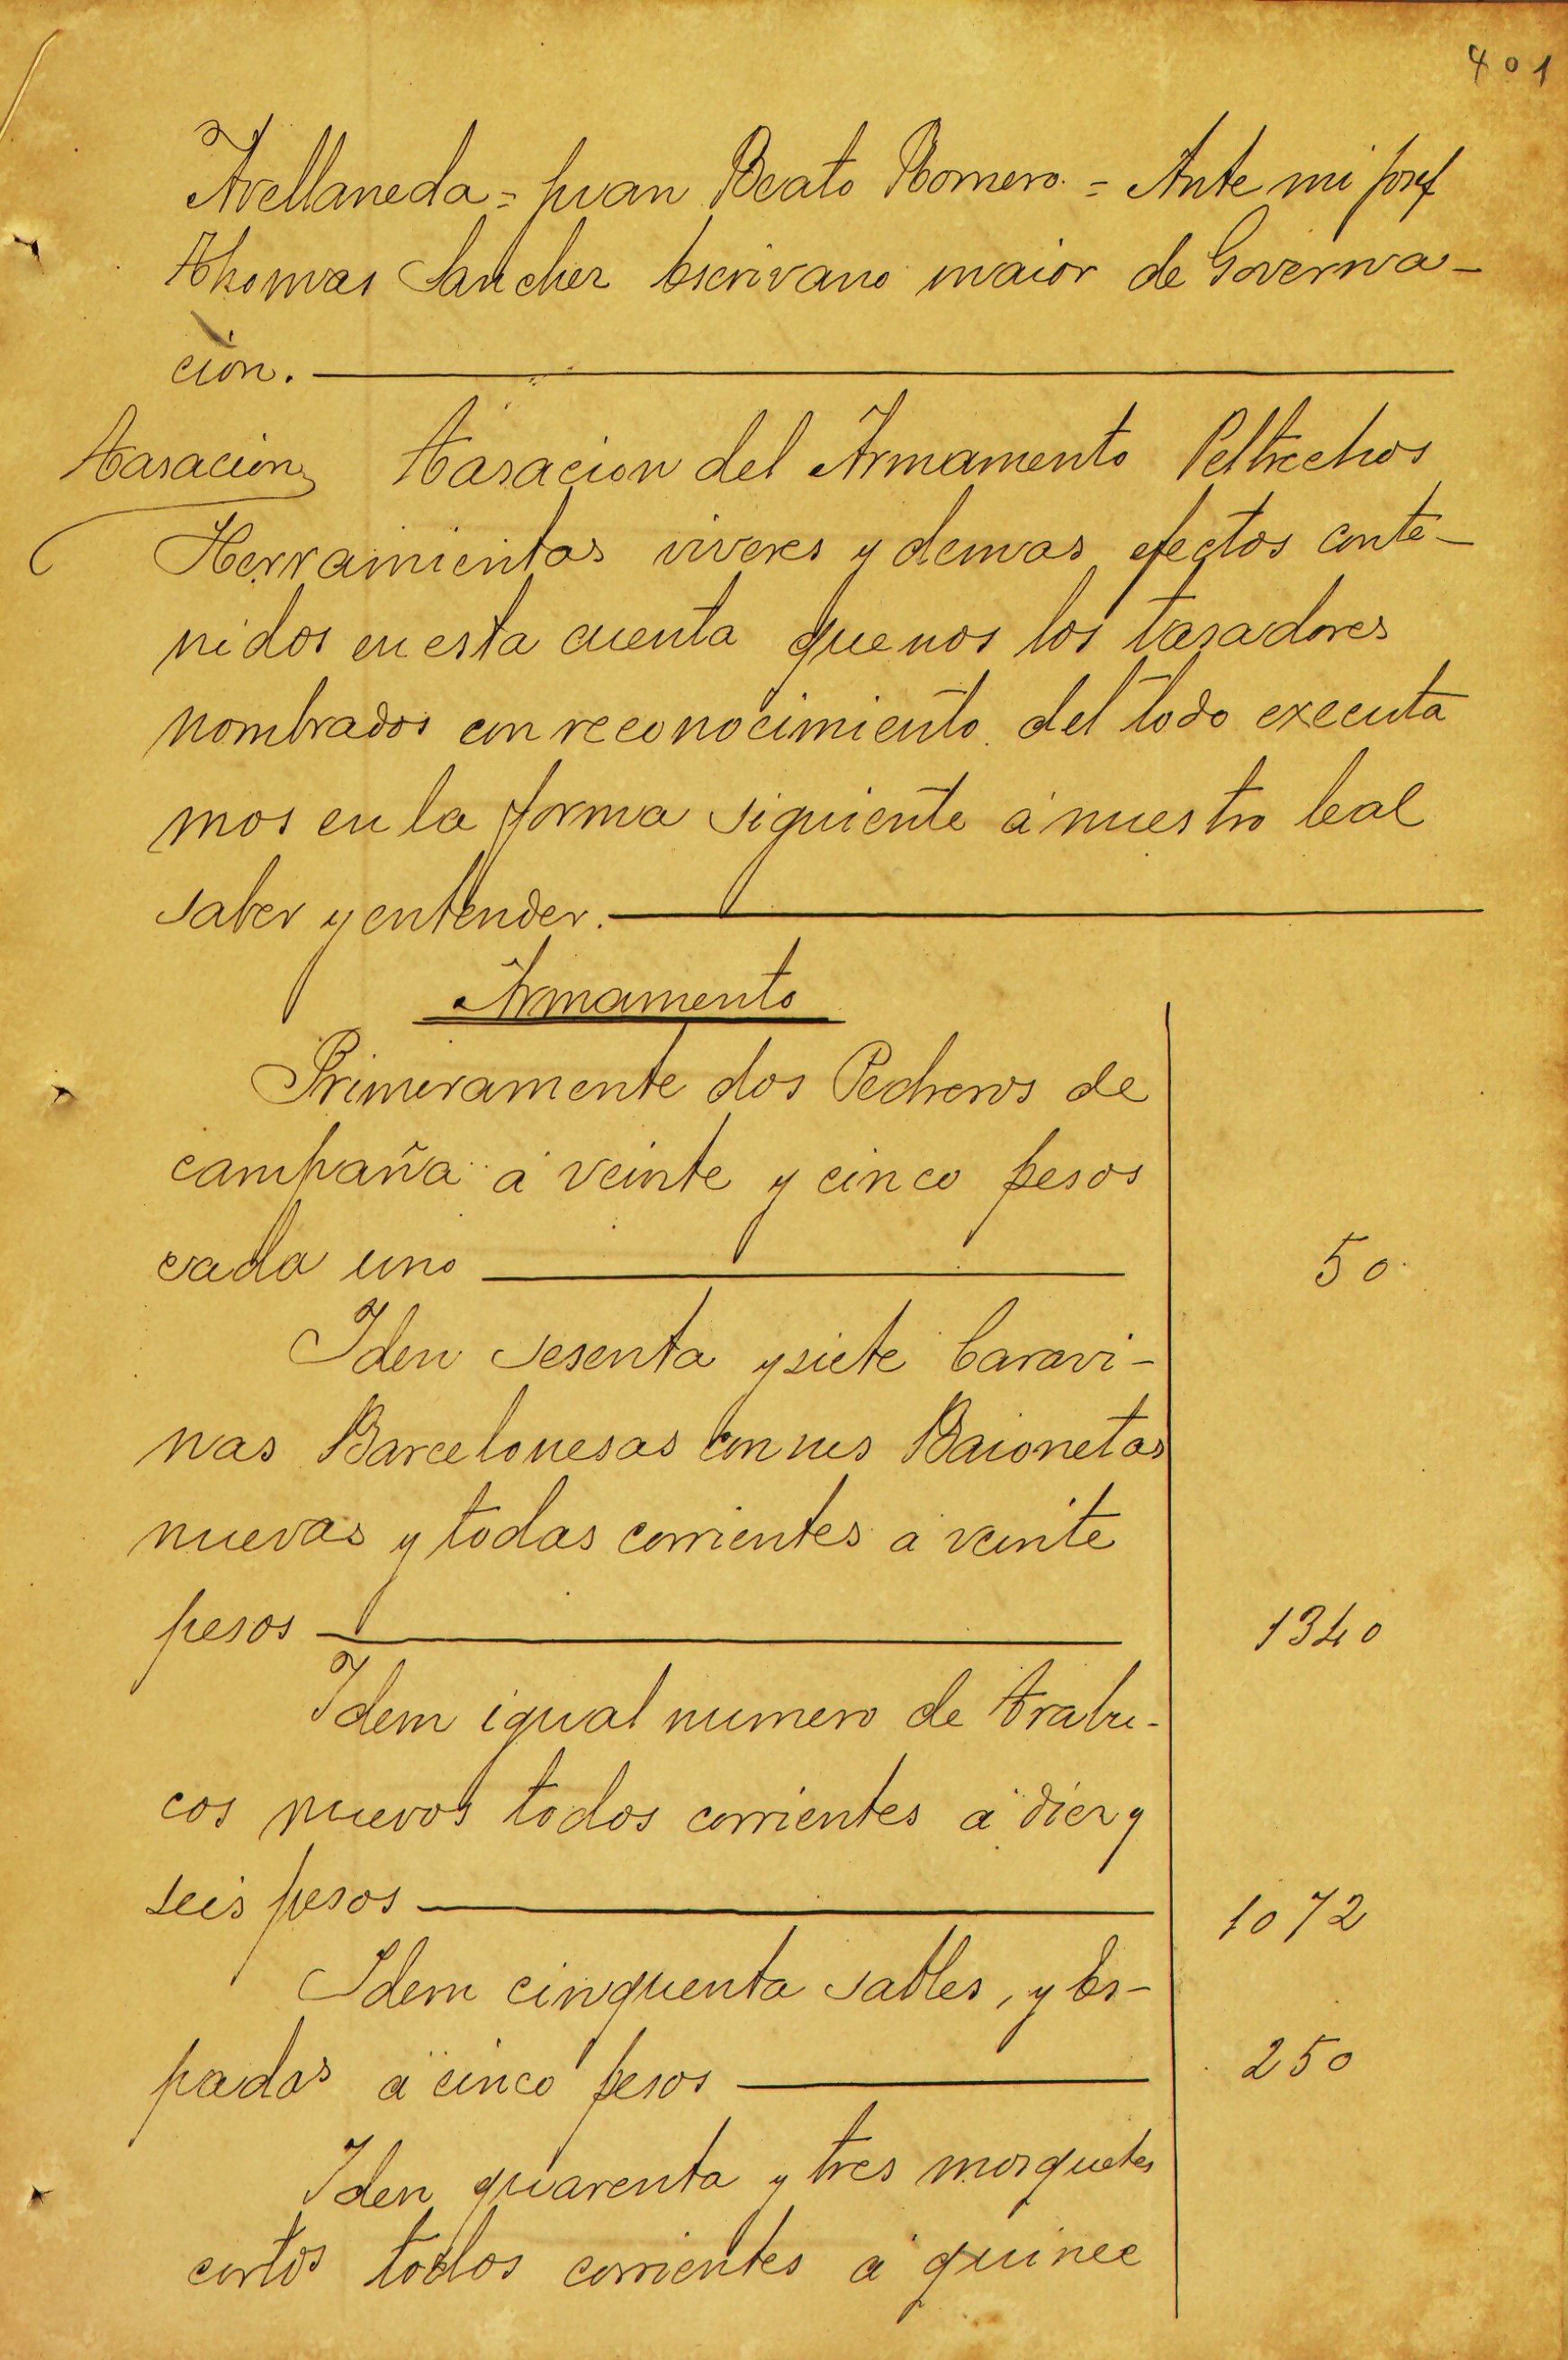 401
Avellaneda = Juan Beato Romero. = Ante mi Josef
Thomas Sanchez Escrivano maior de Governa-
ción.
Tasacion Tasacion del Armamento Peltrechos
Herramientas viveres y demas efectos conte-
nidos en esta cuenta que nos los tasadores
nombrados con reconocimiento del todo executa
mos en la forma siguiente á nuestro leal
saber y entender.
Armamento
Primeramente dos Pedreros de
campaña á veinte y cinco pesos
cada uno 50
Iden sesenta y siete Caravi-
nas Barcelonesas con sus Baionetas
nuevas y todas corrientes a veinte
pesos 1340
Idem igual numero de Trabu-
cos nuevos todos corrientes a diez y
seis pesos 1072
Idem cinquenta sables, y Es-
padas a cinco pesos 250
Iden quarenta y tres mosquetes
cortos todos corrientes a quince